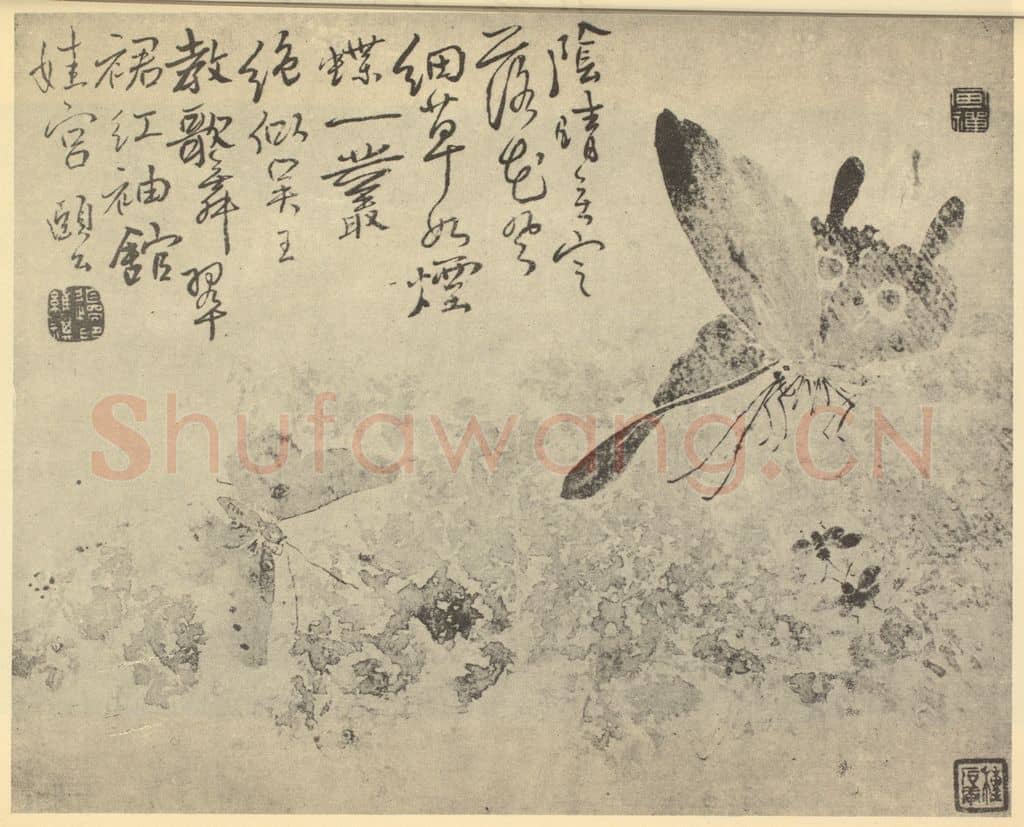 陰晴无定
落花風
細草如煙
蝶一叢
絶似吴王
教歌舞翠
裙紅袖館
娃宮
頤公
Shufawang.CN